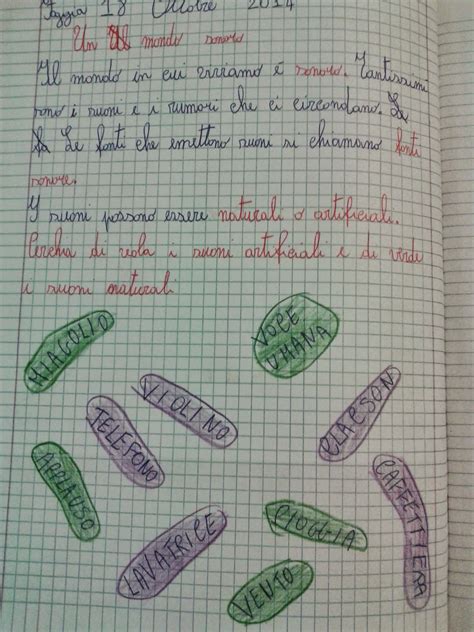 Foggia 18 Ottobre 2014
Un mondo sonoro
Il mondo in cui viviamo è sonoro. Tantissimi
sono i suoni e i rumori che ci circondano. Le
Le fonti che emettono suoni si chiamano fonti
sonore.
I suoni possono essere naturali o artificiali.
Cerchia di viola i suoni artificiali e di verde
i suoni naturali
MIAGOLIO
VOCE
UMANA
VIOLINO
CLACSON
TELEFONO
APPLAUSO
CAFFETTIERA
LAVATRICE
PIOGGIA
VENTO